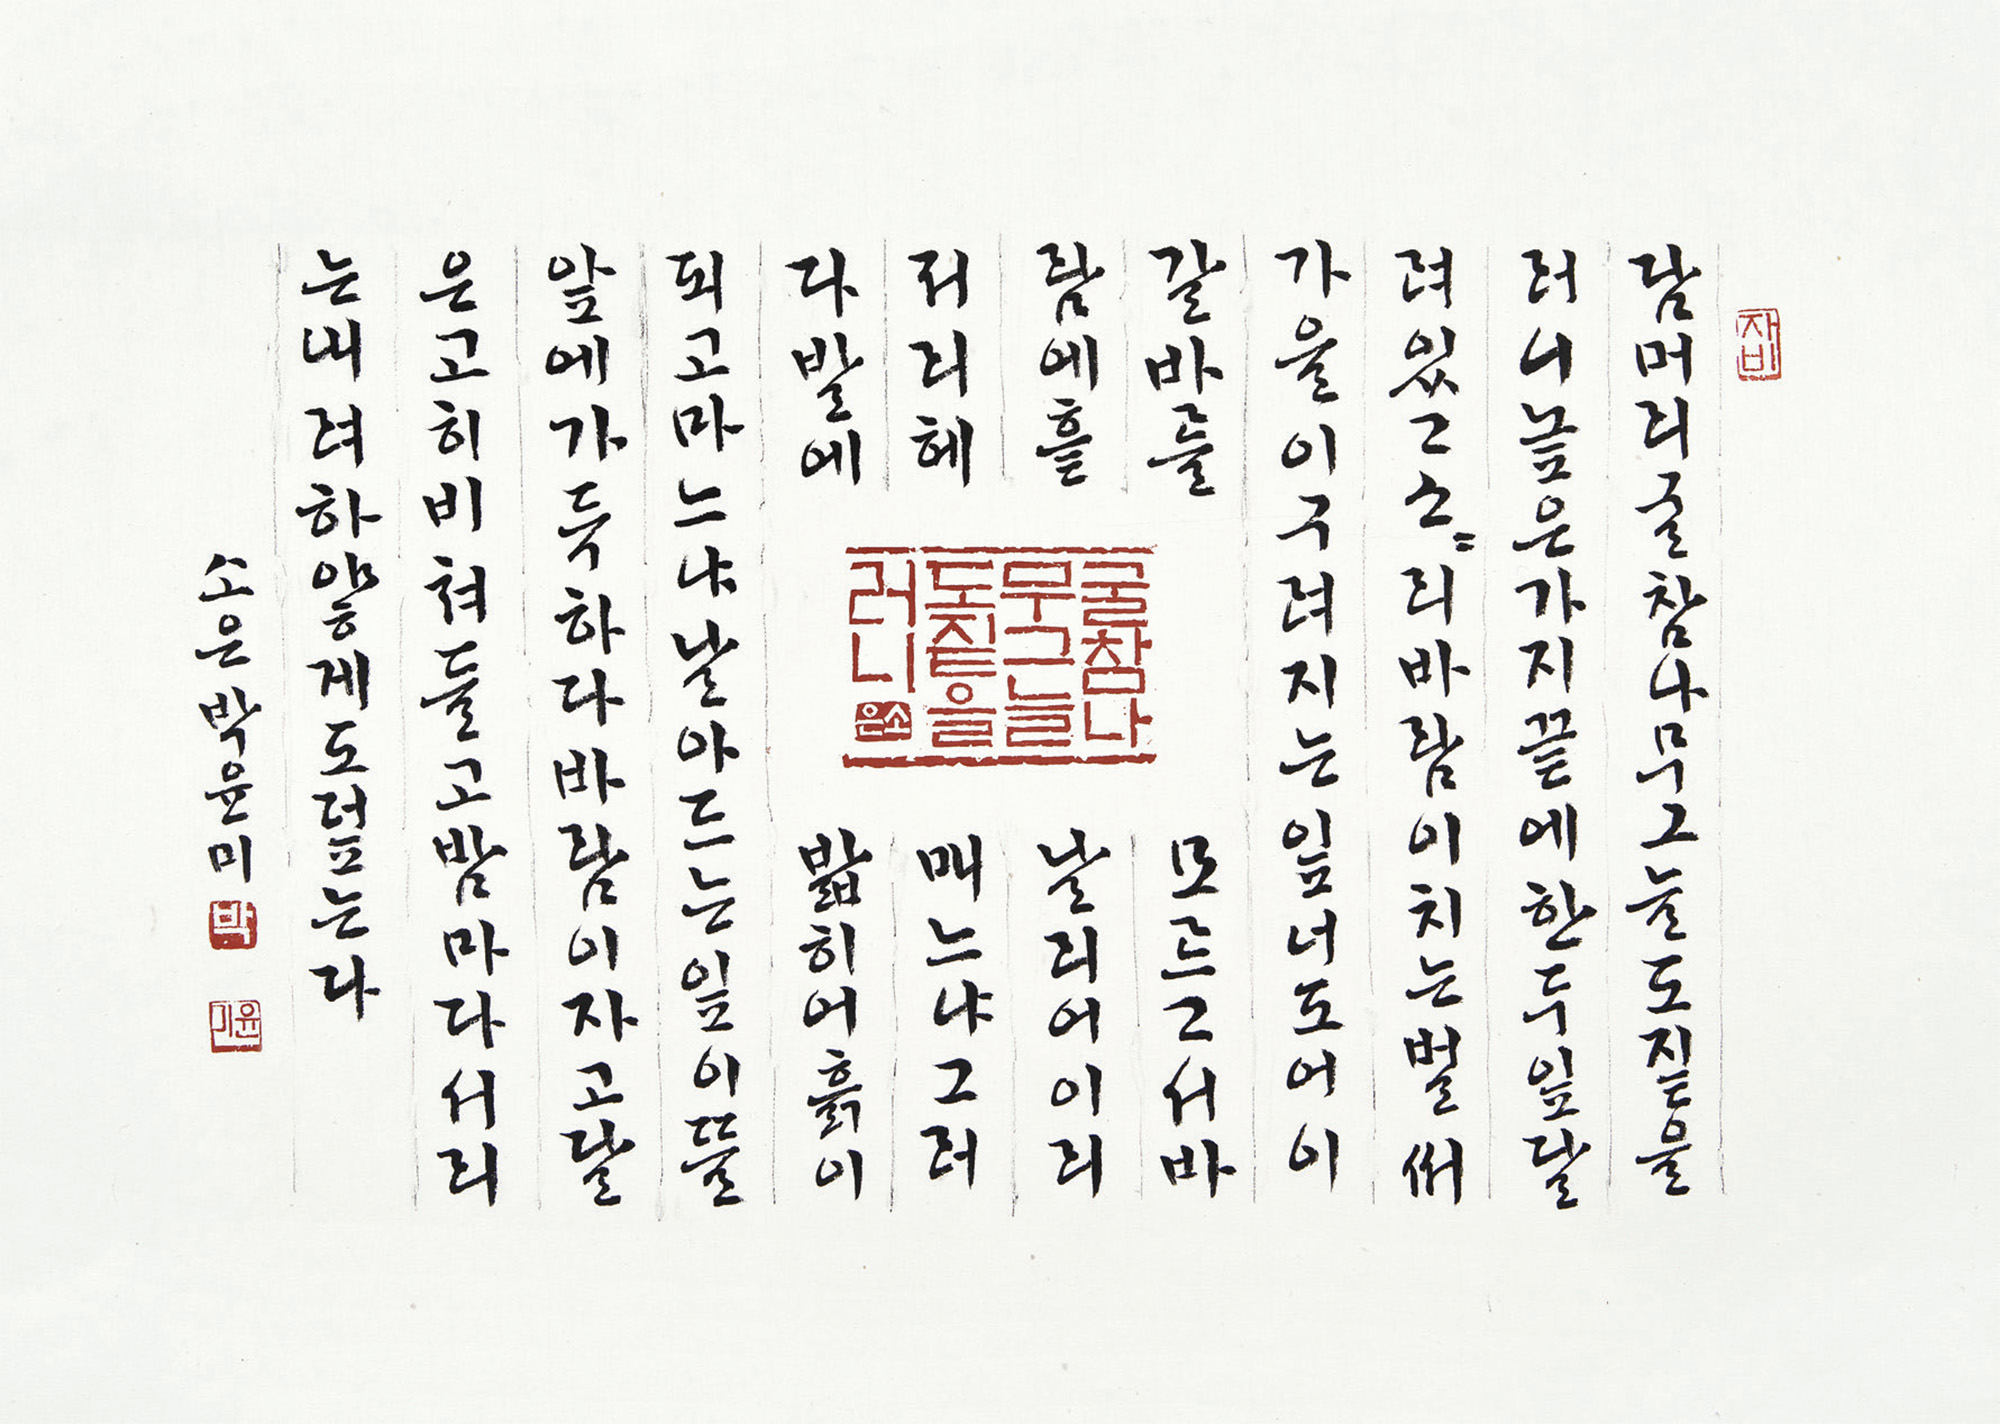 자비
담머리굴참나무그늘도짙을
러니높은가지끝에한두잎달
려있그소〃리바람이치는벌써
가을이구려지는잎너도어이
갈바를 모르그서바
람에흩 날리어이리
저리헤 매느냐그러
다발에 밟히어흙이
되고마느냐날아드는잎이뜰
앞에가득하다바람이자고달
은고히비쳐들고밤마다서리
는내려하얗게도덮는다
굴참나
무그늘
도짙을
러니
소은
소은박윤미
박
윤미